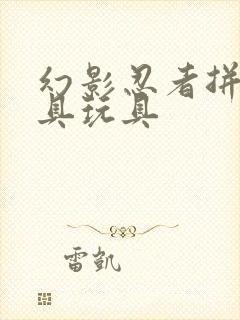 幻影忍者拼
具玩具
雷凯